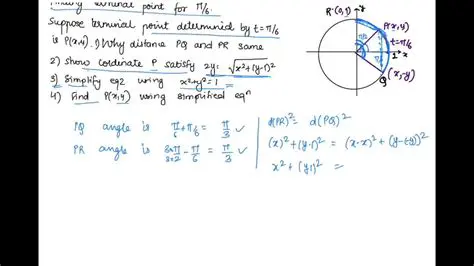 terminal point for π/6
Suppose terminal point determined by t=π/6
is P(x,y). 1) Why distance PQ and PR same
2) Show cordinate P satisfy 2y = √x²+(y-1)²
3) Simplify eq2 using x²+y²=1
4) Find P(x,y) using simplified eqⁿ
R(0,1)
P(x,y)
t=π/6
Q (x,-y)
PQ angle is π/6 + π/6 = π/3 ✓
PR angle is 3π/3×2 - π/6 = π/3 ✓
d(PR)² = d(PQ)²
(x)²+(y-1)² = (x-x)²+(y-(-y))²
x²+(y-1)² =